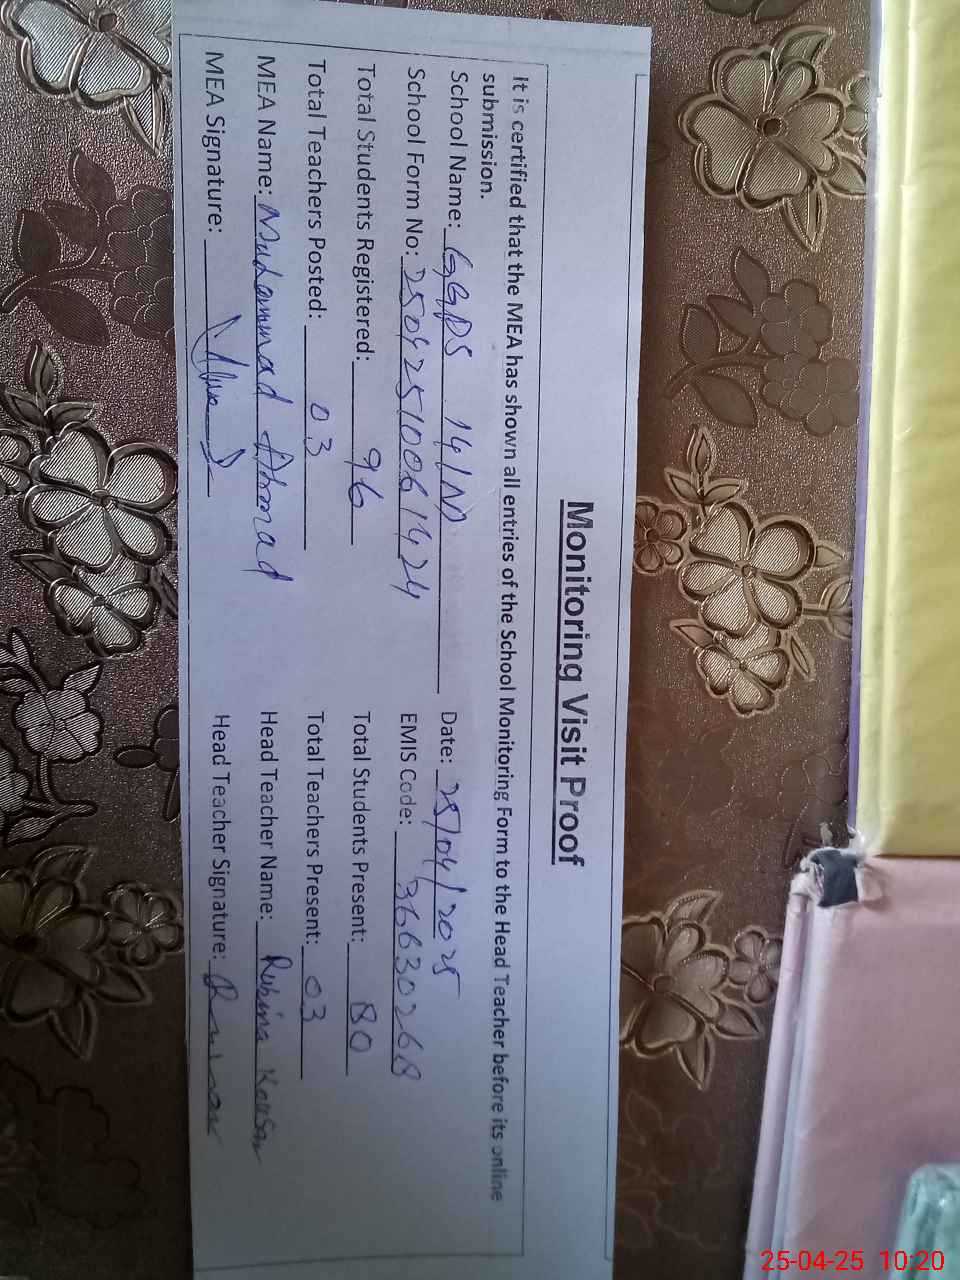 Monitoring Visit Proof
It is certified that the MEA has shown all entries of the School Monitoring Form to the Head Teacher before its online
submission.
School Name: GGPS 14/M Date: 25/04/2025
School Form No: 25042510061424 EMIS Code: 36630268
Total Students Registered: 96 Total Students Present: 80
Total Teachers Posted: 03 Total Teachers Present: 03
MEA Name: Muhammad Ahmad Head Teacher Name: Rubina Kousar
MEA Signature: Head Teacher Signature:
25-04-25 10:20